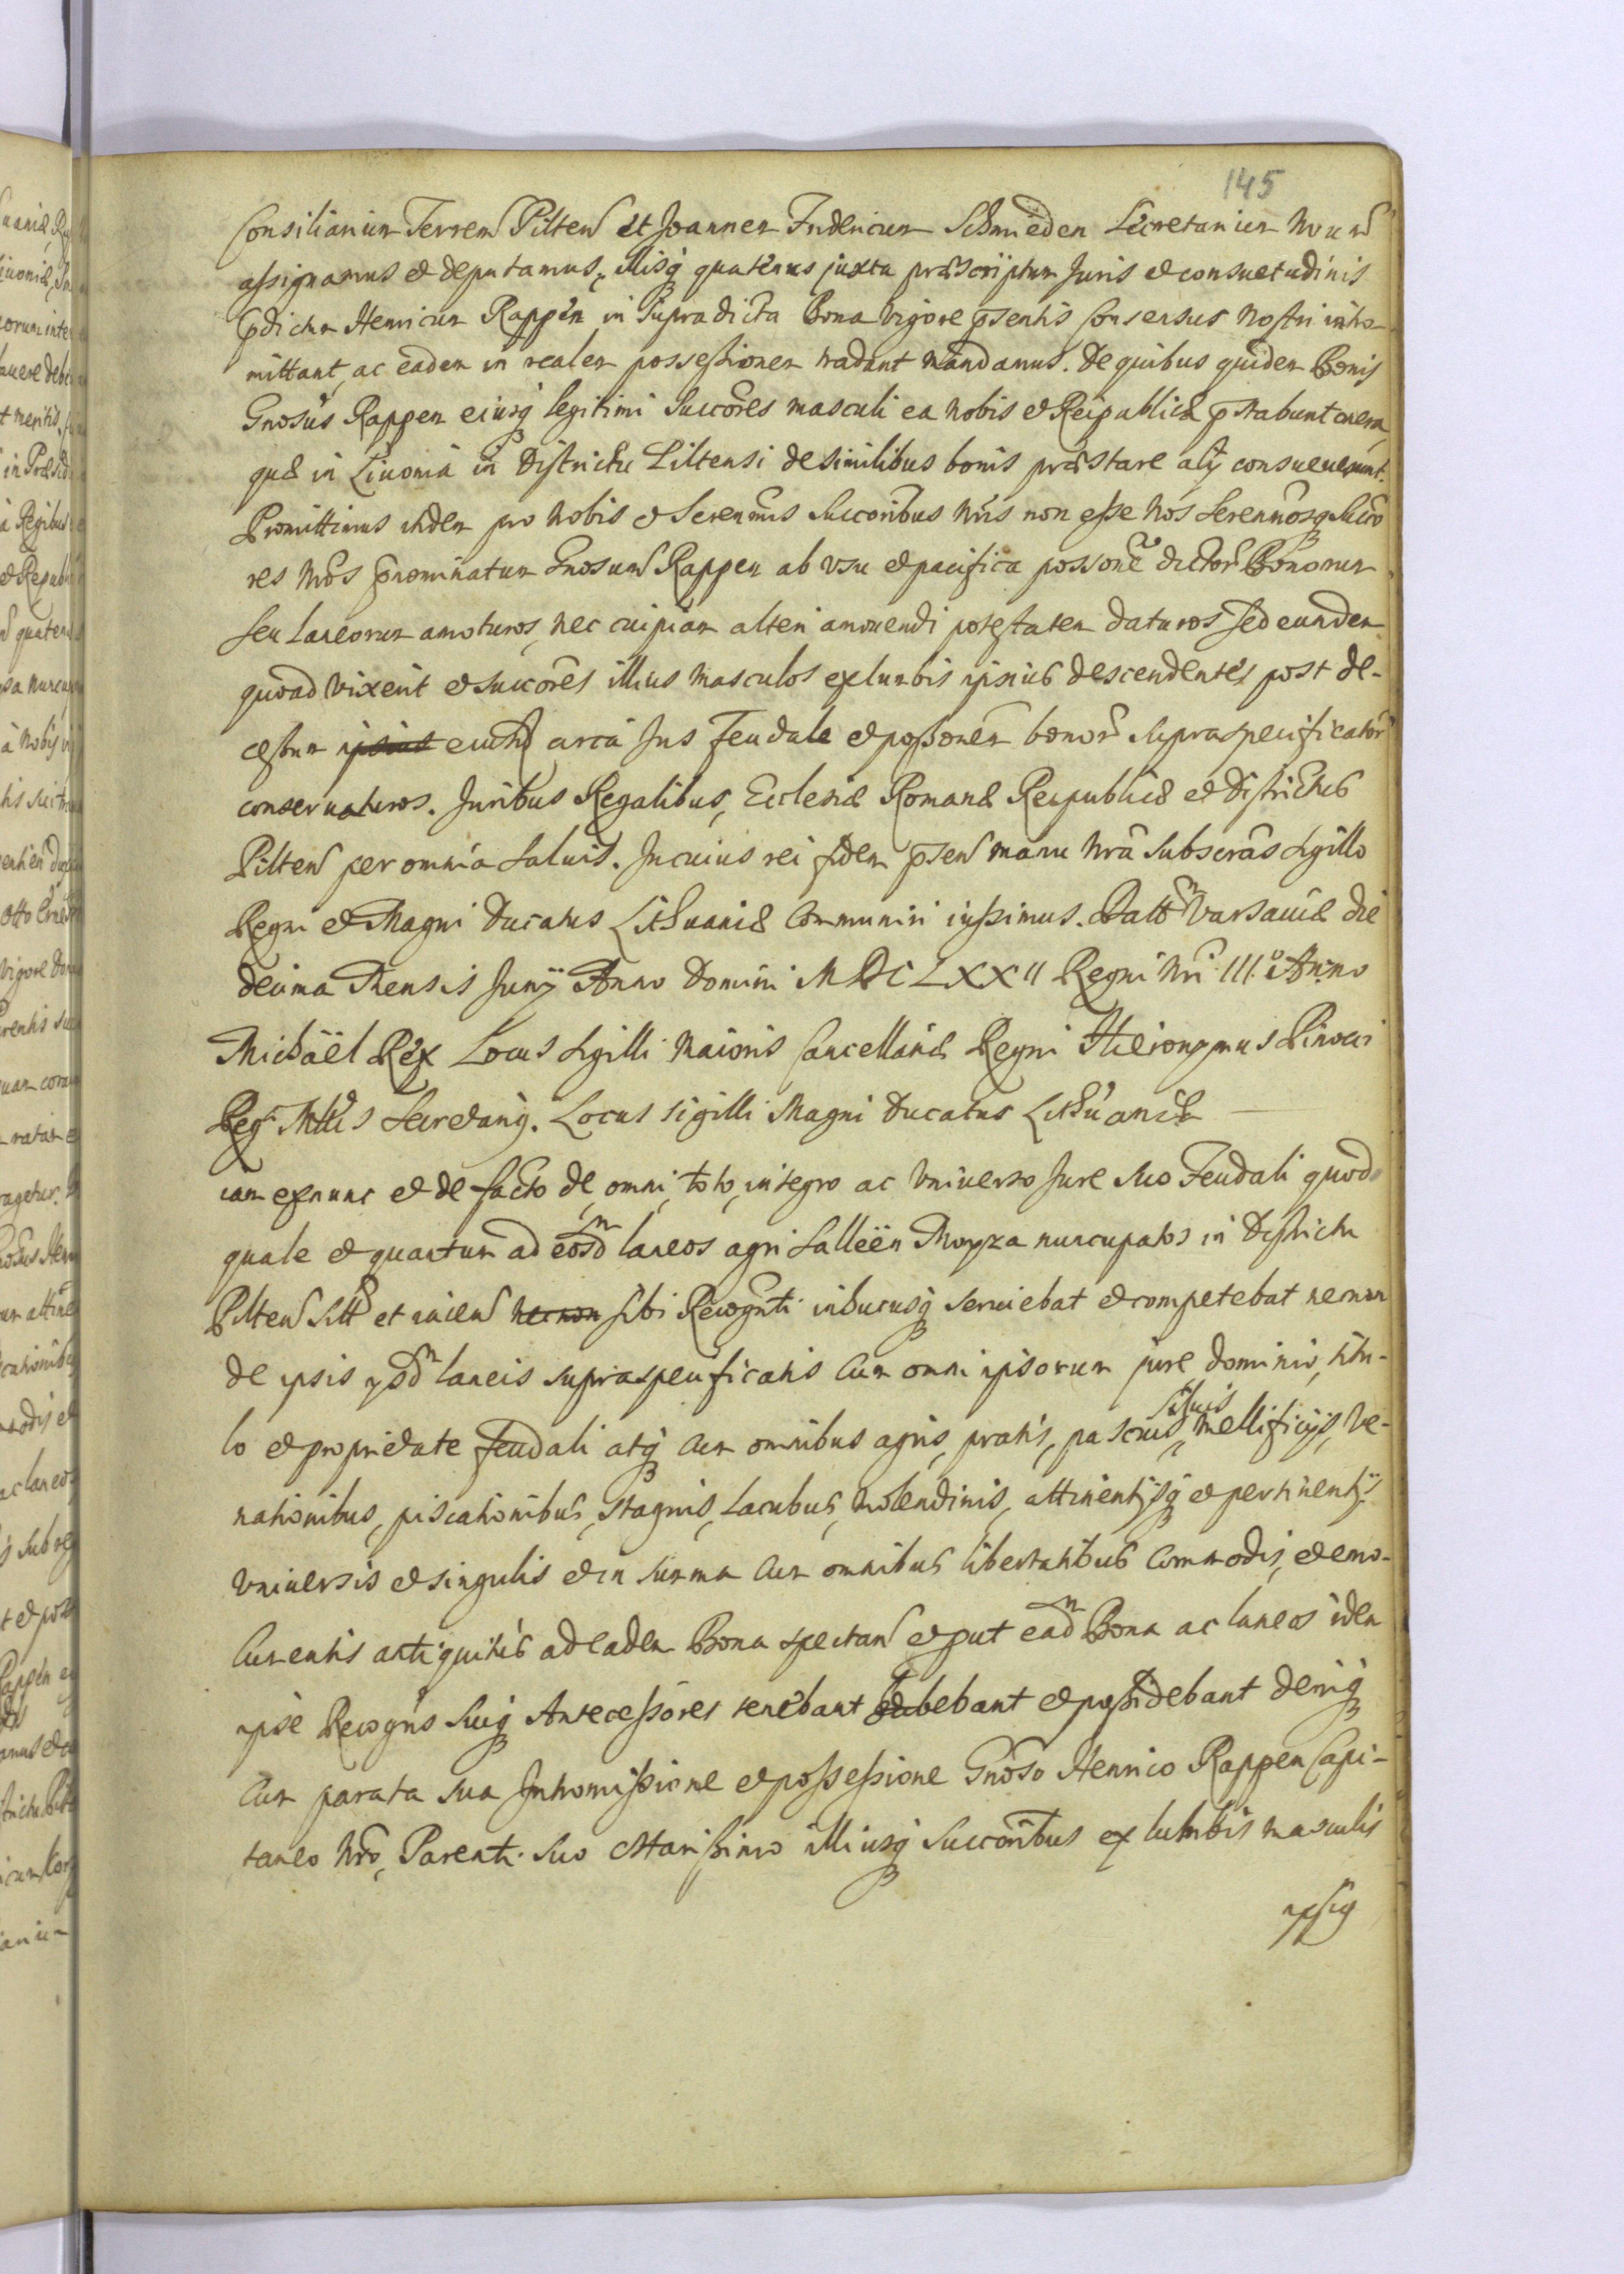 145
Consilianium Terren Pilten et Joannem Fridericum Schmieden Secretarium Nrum
assignamus et deputamus, illisq quatenus juxta præscriptum Juris et consuetudinis
pdictum Henricum Rappen in supradicta Bona vigore psentis Consensus Nostri intro-
mittant, ac eadem in realem possessionem tradant mandamus. De quibus quidem Bonis
Gnosus Rappen eiusq legitimi Succores masculi ea Nobis et Reipublicæ pstabunt onera,
quæ in Livonia in Districtu Piltensi de similibus bonis præstare alij consueverunt.
Promittimus itidem pro Nobis et Serenmis Succoribus Nris non esse Nos Serenmosq Succo
res Nros pnominatum Gnosum Rappen ab vsu et pacifica possone dictor Bonorum
seu laneorum amoturos, nec cuipiam alteri amovendi potestatem daturos sed eundem
quoad vixerit et succores illius masculos ex lumbis ipsius descendentes post de-
cessum ipsius eiusd circa Jus Feudale et possonem bonor supraspecificator
conservaturos. Juribus Regalibus, Ecclesiæ Romanæ Reipublicæ et Districtus
Pilten per omnia salvis. In cuius rei fidem psen manu Nra subscras sigillo
Regni et Magni Ducatus Lithuaniæ communiri iussimus. Datt Varsaviæ die
decima Mensis Junij Anno Domini MDCLXXII Regni Nri III. Anno
Michaël Rex Locus sigilli Maioris Cancellariæ Regni Hieronymus Pinocci
Reg Mttis Secretarig. Locus sigilli Magni Ducatus Lithuaniæ
iam exnunc et de facto de omni, toto, integro ac vniverso Jure suo Feudali quod
quale et quantum ad eosd laneos agri Salleën Moyza nuncupatos in Districtu
Pilten sitt et iacen necnon sibi Recognti inhucusq serviebat et competebat necnon
de ipsis ysd laneis supraspecificatis cum omni ipsorum jure dominio, titu-
lo et proprietate feudali atq cum omnibus agris, pratis, pascuis, silvis mellificijs, ve-
nationibus, piscationibus, stagnis, lacubus, molendinis, attinentijsq et pertinentijs
vniversis et singulis et in summa cum omnibus libertatibus commodis, et emo-
lumentis antiquitus ad eadem Bona spectan et put ead Bona ac laneos idem
ipse Recogns suiq Antecessores tenebant habebant et possidebant deniq
cum parata sua Intromissione et possessione Gnoso Henrico Rappen Capi-
taneo Nro, Parenti suo charissimo illiusq succoribus ex lumbis masculis
ipsig